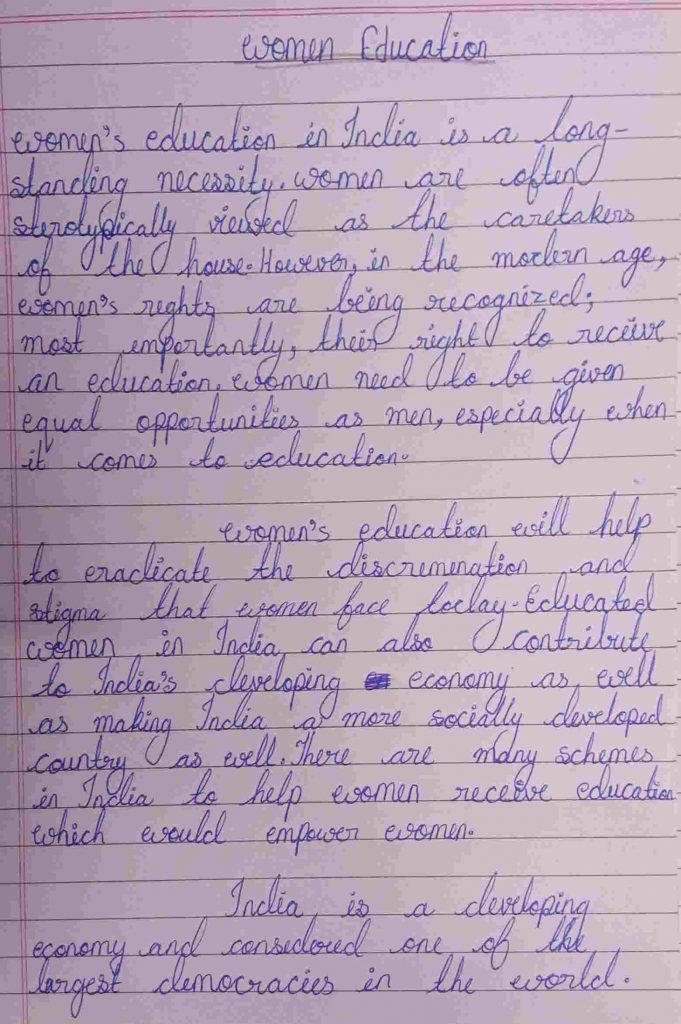 women Education
women's education in India is a long-
standing necessity. women are often
sterotypically viewed as the caretakers
of the house. However, in the modern age,
women's rights are being recognized;
most importantly, their right to receive
an education. women need to be given
equal opportunities as men, especially when
it comes to education.
women's education will help
to eradicate the discremination and
stigma that women face today. Educated
women in India can also contribute
to India's developing economy as well
as making India a more socially developed
country as well. There are many schemes
in India to help women receive education
which would empower women.
India is a developing
economy and considered one of the
largest democracies in the world.